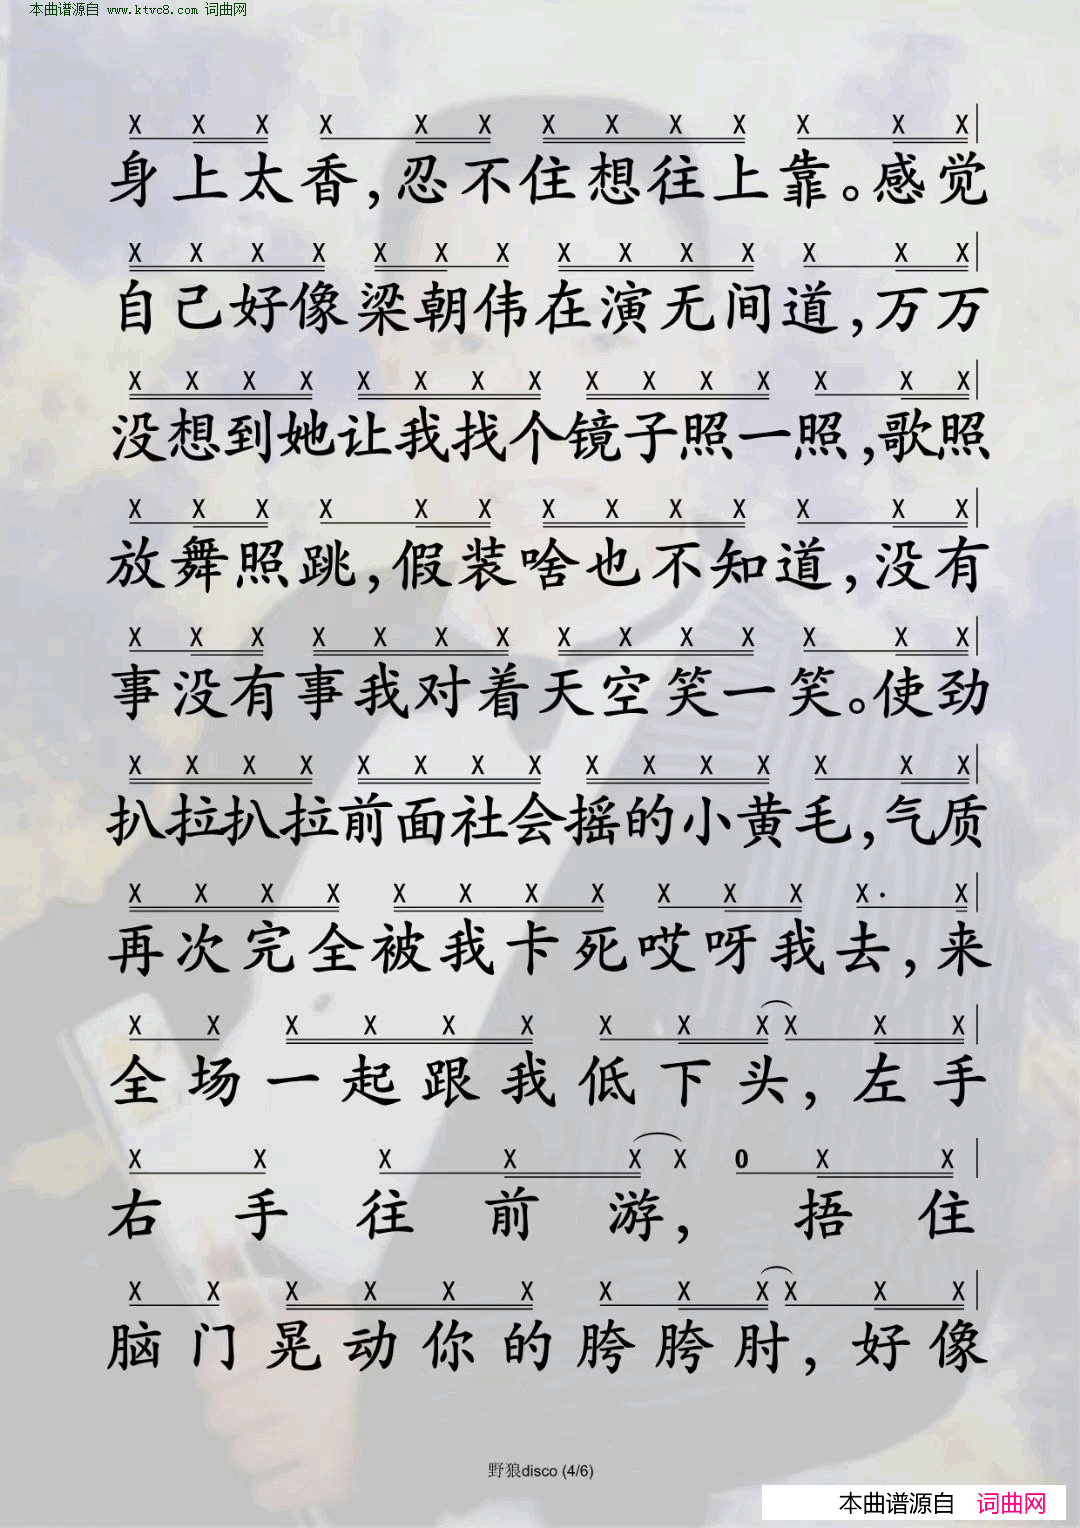 本曲谱源自 www.ktvc8.com 词曲网
X X X X X X X X X X X X X
身上太香,忍不住想往上靠。感觉
X X X X X X X X X X X X X X
自己好像梁朝伟在演无间道,万万
X X X X X X X X X X X X X X X
没想到她让我找个镜子照一照,歌照
X X X X X X X X X X X X X
放舞照跳,假装啥也不知道,没有
X X X X X X X X X X X X X X
事没有事我对着天空笑一笑。使劲
X X X X X X X X X X X X X X X
扒拉扒拉前面社会摇的小黄毛,气质
X X X X X X X X X X X X· X
再次完全被我卡死哎呀我去,来
X X X X X X X X X X X X
全场一起跟我低下头,左手
X X X X X X 0 X X
右手往前游,捂住
X X X X X X X X X X X X
脑门晃动你的胯胯肘,好像
野狼disco (4/6)
本曲谱源自 词曲网